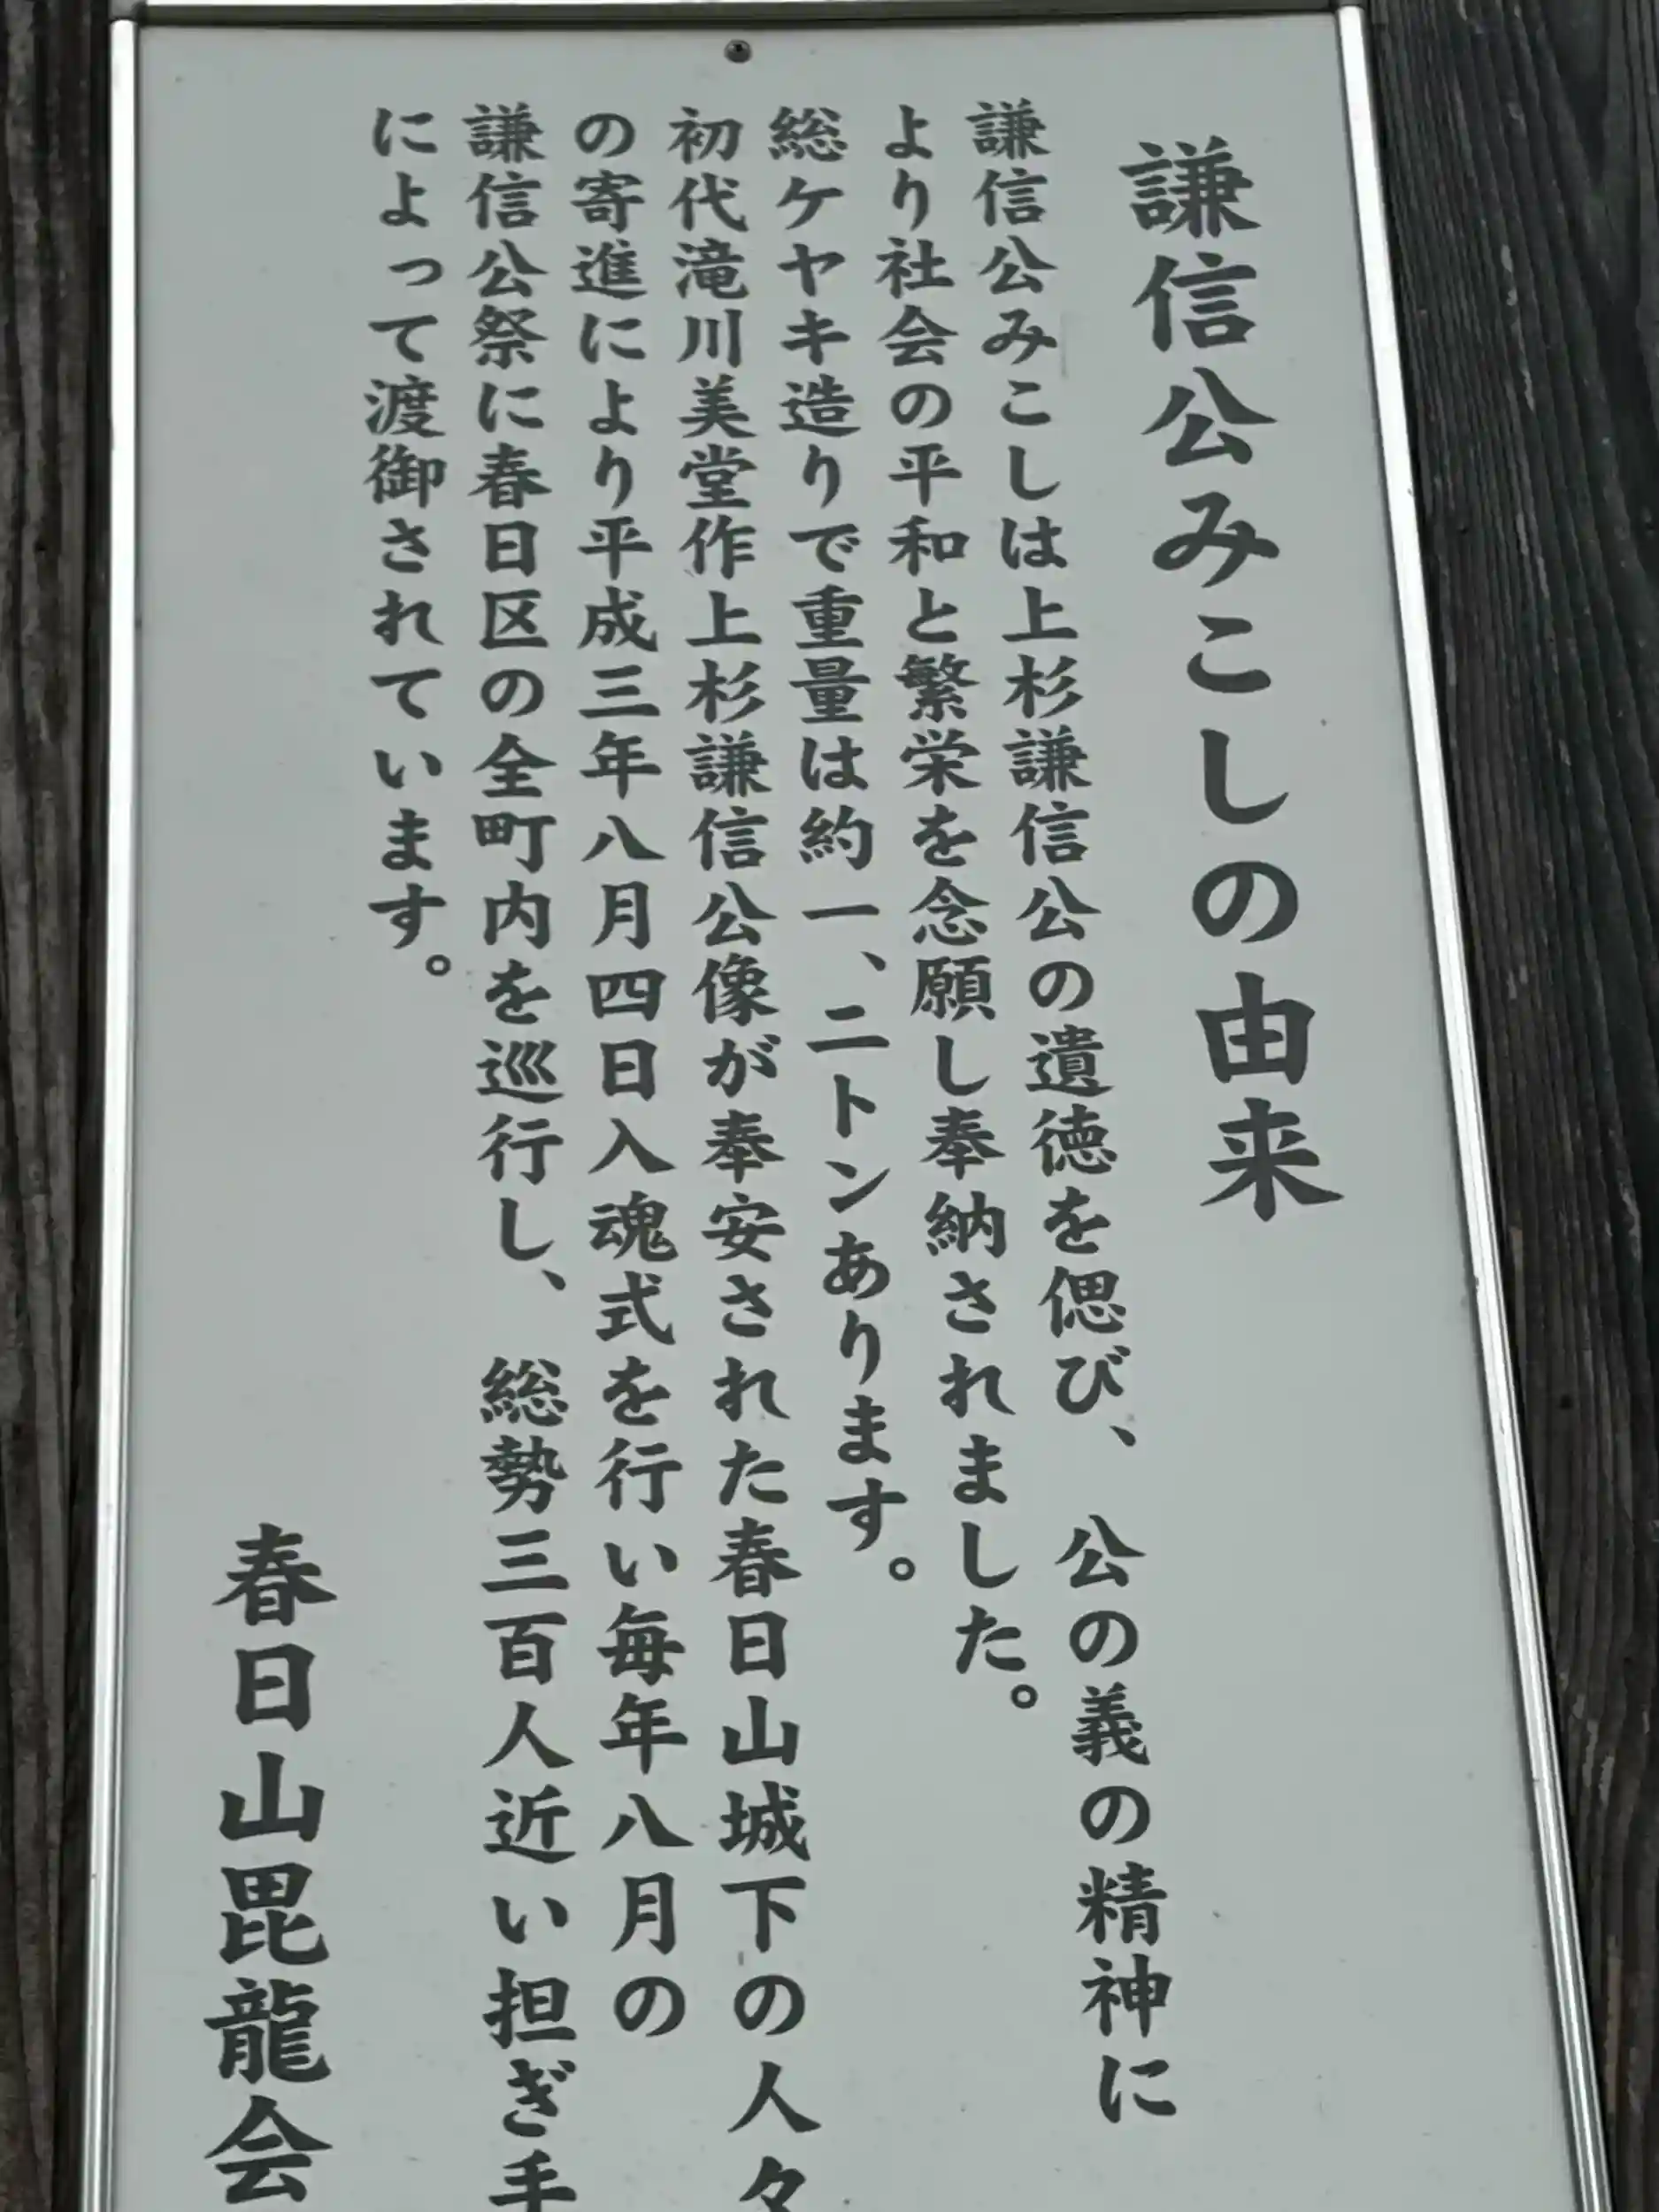 謙信公みこしの由来
謙信公みこしは上杉謙信公の遺徳を偲び、公の義の精神に
より社会の平和と繁栄を念願し奉納されました。
総ケヤキ造りで重量は約一、二トンあります。
初代滝川美堂作上杉謙信公像が奉安された春日山城下の人々
の寄進により平成三年八月四日入魂式を行い毎年八月の
謙信公祭に春日区の全町内を巡行し、総勢三百人近い担ぎ手
によって渡御されています。
春日山毘龍会